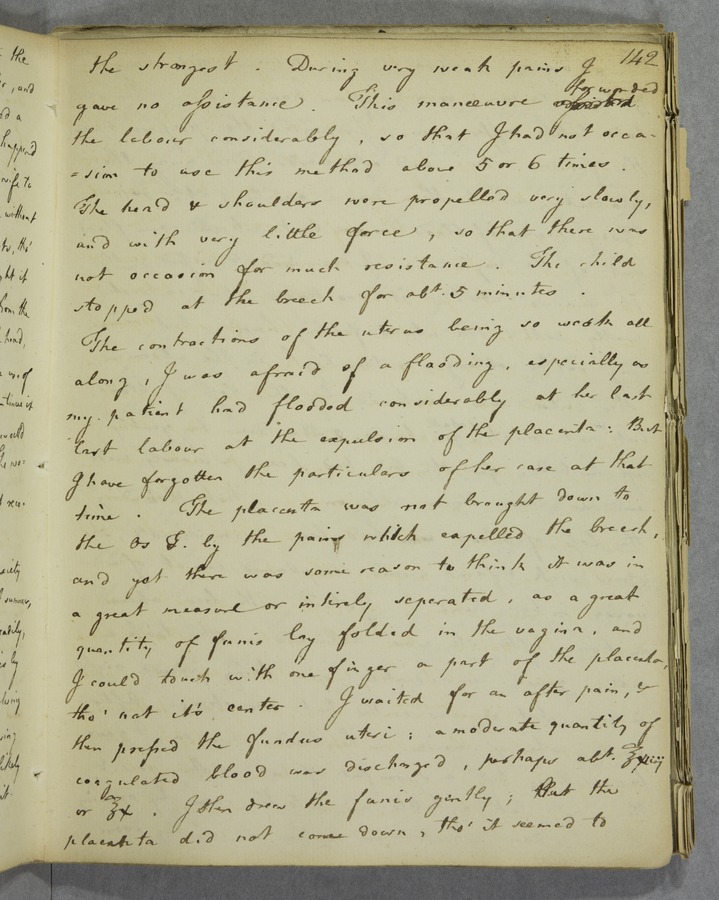 142
the strongest. During very weak pains I
forwarded
gave no assistance. This manœuvre
the labour considerably, so that I had not occa-
=sion to use this method above 5 or 6 times.
The head & shoulders were propelled very slowly,
and with very little force, so that there was
not occasion for much resistance. The child
stopped at the breech for abt. 5 minutes.
The contractions of the uterus being so weak all
along, I was afraid of a flooding, especially as
my patient had flooded considerably at her last
last labour at the expulsion of the placenta: But
I have forgotten the particulars of her case at that
time. The placenta was not brought down to
the Os I. by the pains which expelled the breech,
and yet there was some reason to think it was in
a great measure or intirely seperated, as a great
quantity of funis lay folded in the vagina, and
I could touch with one finger a part of the placenta,
tho' not it's center. I waited for an after pain, &
then pressed the fundus uteri: a moderate quantity of
coagulated blood was discharged, perhaps abt. ℥
or ℥x. I then drew the funis gently; but the
placenta did not come down, tho' it seemed to